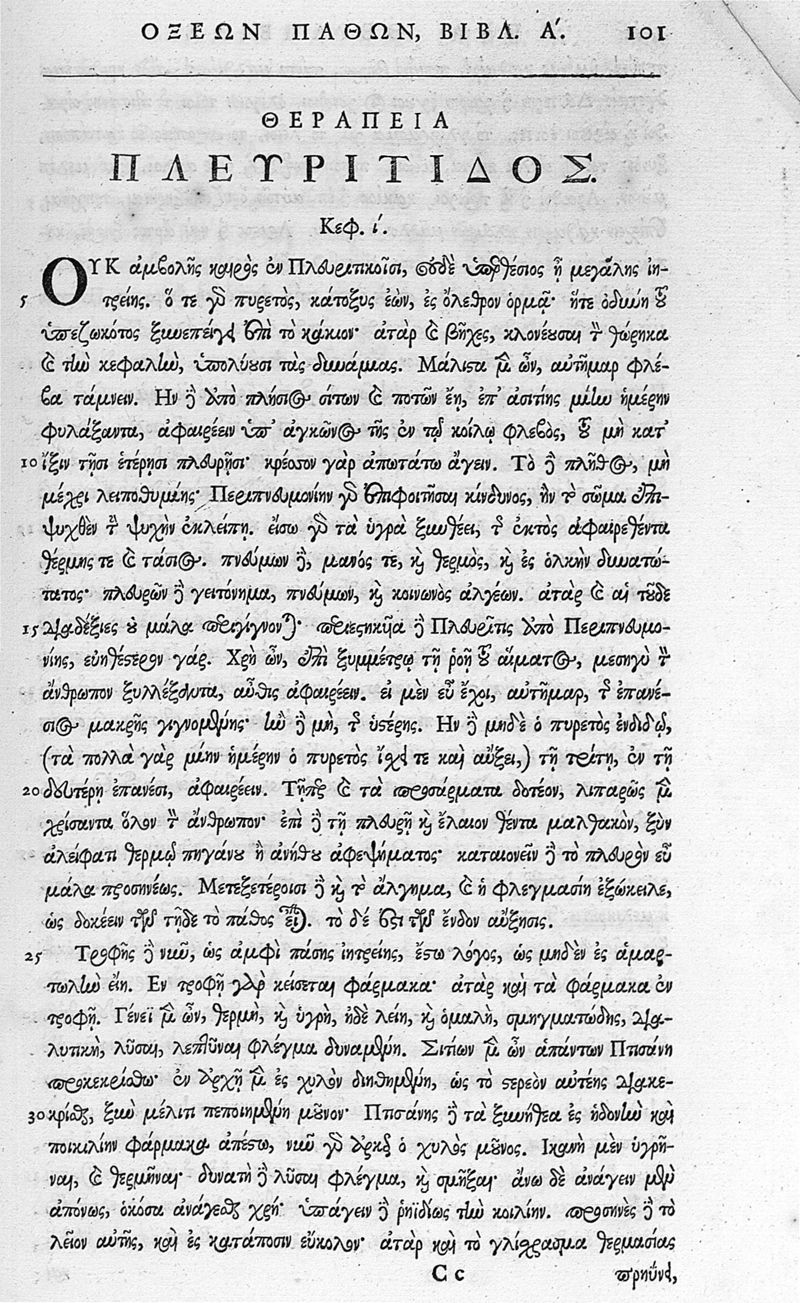 ΟΞΕΩΝ ΠΑΘΩΝ, ΒΙΒΛ. Α΄. 101
ΘΕΡΑΠΕΙΑ
ΠΛΕΥΡΙΤΙΔΟΣ.
Κεφ. ί.
ΟΥΚ ἀμβολῆς καιρὸς ἐν Πλευριτικοῖσι, οὐδὲ ὑπερθέσιος ἢ μεγάλης ἰη-
5 τρείης. ὅ τε γὰρ πυρετὸς, κάτοξυς ἐὼν, ἐς ὄλεθρον ὁρμᾷ· ἥτε ὀδύνη τοῦ
ὑπεζωκότος ξυνεπείγει ἐπὶ τὸ κάκιον· ἀτὰρ καὶ βῆχες, κλονέουσαι τὸν θώρηκα
καὶ τὴν κεφαλὴν, ὑπολύουσι τὰς δυνάμιας. Μάλιστα μὲν ὦν, αὐτῆμαρ φλέ-
βα τάμνειν. Ην δὲ ἀπὸ πλήσιος σίτων καὶ ποτῶν ἔῃ, ἐπ' ἀσιτίης μίην ἡμέρην
φυλάξαντα, ἀφαιρέειν ἀπ' ἀγκῶνος τῆς ἐν τῷ κοίλῳ φλεβὸς, τοῦ μὴ κατ'
10 ἴξιν τῇσι ἑτέρῃσι πλευρῇσι· κρέσσον γὰρ ἀπωτάτω ἄγειν. Τὸ δὲ πλῆθος, μὴ
μέχρι λειποθυμίης· Περιπνευμονίην γὰρ ἐπιφοιτῆσαι κίνδυνος, ἢν τὸ σῶμα ἐπι-
ψυχθὲν τὴν ψυχὴν ἐκλείπῃ. εἴσω γὰρ τὰ ὑγρὰ ξυνθέει, τῆς ἐκτὸς ἀφαιρεθέντα
θέρμης τε καὶ τάσιος. πνεύμων δὲ, μανός τε, καὶ θερμὸς, καὶ ἐς ὁλκὴν δυνατώ-
τατος· πλευρῶν δὲ γειτόνημα, πνεύμων, καὶ κοινωνὸς ἀλγέων. ἀτὰρ καὶ αἱ τοῦδε
15 διαδέξιες οὐ μάλα περιγίγνονται· περιεστηκυῖα δὲ Πλευρῖτις ἀπὸ Περιπνευμο-
νίης, εὐηθέστερον γάρ. Χρὴ ὦν, ἐπὶ ξυμμέτρῳ τῇ ῥοῇ τοῦ αἵματος, μεσηγὺ τὸν
ἄνθρωπον ξυλλέξαντα, αὖθις ἀφαιρέειν. εἰ μὲν εὖ ἔχοι, αὐτῆμαρ, τῆς ἐπανέ-
σιος μακρῆς γιγνομένης· ἢν δὲ μὴ, τῆς ὑστέρης. Ην δὲ μηδὲ ὁ πυρετὸς ἐνδιδῷ,
(τὰ πολλὰ γὰρ μίην ἡμέρην ὁ πυρετὸς ἴσχει τε καὶ αὔξει,) τῇ τρίτῃ, ἐν τῇ
20 δευτέρῃ ἐπανέσι, ἀφαιρέειν. Τῆμος καὶ τὰ προσάρματα δοτέον, λιπαρῶς μὲν
χρίσαντα ὅλον τὸν ἄνθρωπον· ἐπὶ δὲ τῇ πλευρῇ καὶ ἔλαιον θέντα μαλθακὸν, ξὺν
ἀλείφατι θερμῷ πηγάνου ἢ ἀνήθου ἀφεψήματος· καταιονεῖν δὲ τὸ πλευρὸν εὖ
μάλα προσηνέως. Μετεξετέροισι δὲ καὶ τὸ ἄλγημα, καὶ ἡ φλεγμασίη ἐξώκειλε,
ὡς δοκέειν τῶν τῇδε τὸ πάθος εἶναι. τὸ δέ ἐστι τῶν ἔνδον αὔξησις.
25 Τροφῆς δὲ νῦν, ὡς ἀμφὶ πάσης ἰητρείης, ἔστω λόγος, ὡς μηδὲν ἐς ἁμαρ-
τωλὴν εἴη. Εν τροφῇ γὰρ κείσεται φάρμακα· ἀτὰρ καὶ τὰ φάρμακα ἐν
τροφῇ. Γένεϊ μὲν ὦν, θερμὴ, καὶ ὑγρὴ, ἠδὲ λείη, καὶ ὁμαλὴ, σμηγματώδης, δια-
λυτικὴ, λῦσαι, λεπτῦναι φλέγμα δυναμένη. Σιτίων μὲν ὦν ἁπάντων Πτισάνη
προκεκρίσθω· ἐν ἀρχῇ μὲν ἐς χυλὸν διηθημένη, ὡς τὸ στερεὸν αὐτέης διακε-
30 κρίσθαι, ξὺν μέλιτι πεποιημένη μοῦνον· Πτισάνης δὲ τὰ ξυνήθεα ἐς ἡδονὴν καὶ
ποικιλίην φάρμακα ἀπέστω, νῦν γὰρ ἀρκεῖ ὁ χυλὸς μοῦνος. Ικανὴ μὲν ὑγρῆ-
ναι, καὶ θερμῆναι· δυνατὴ δὲ λῦσαι φλέγμα, καὶ σμῆξαι· ἄνω δὲ ἀνάγειν μὲν
ἀπόνως, ὁκόσα ἀνάγεσθαι χρή· ὑπάγειν δὲ ῥηϊδίως τὴν κοιλίην. προσηνὲς δὲ τὸ
λεῖον αὐτῆς, καὶ ἐς κατάποσιν εὔκολον· ἀτὰρ καὶ τὸ γλίσχρασμα θερμασίας
Cc πρηΰνει,